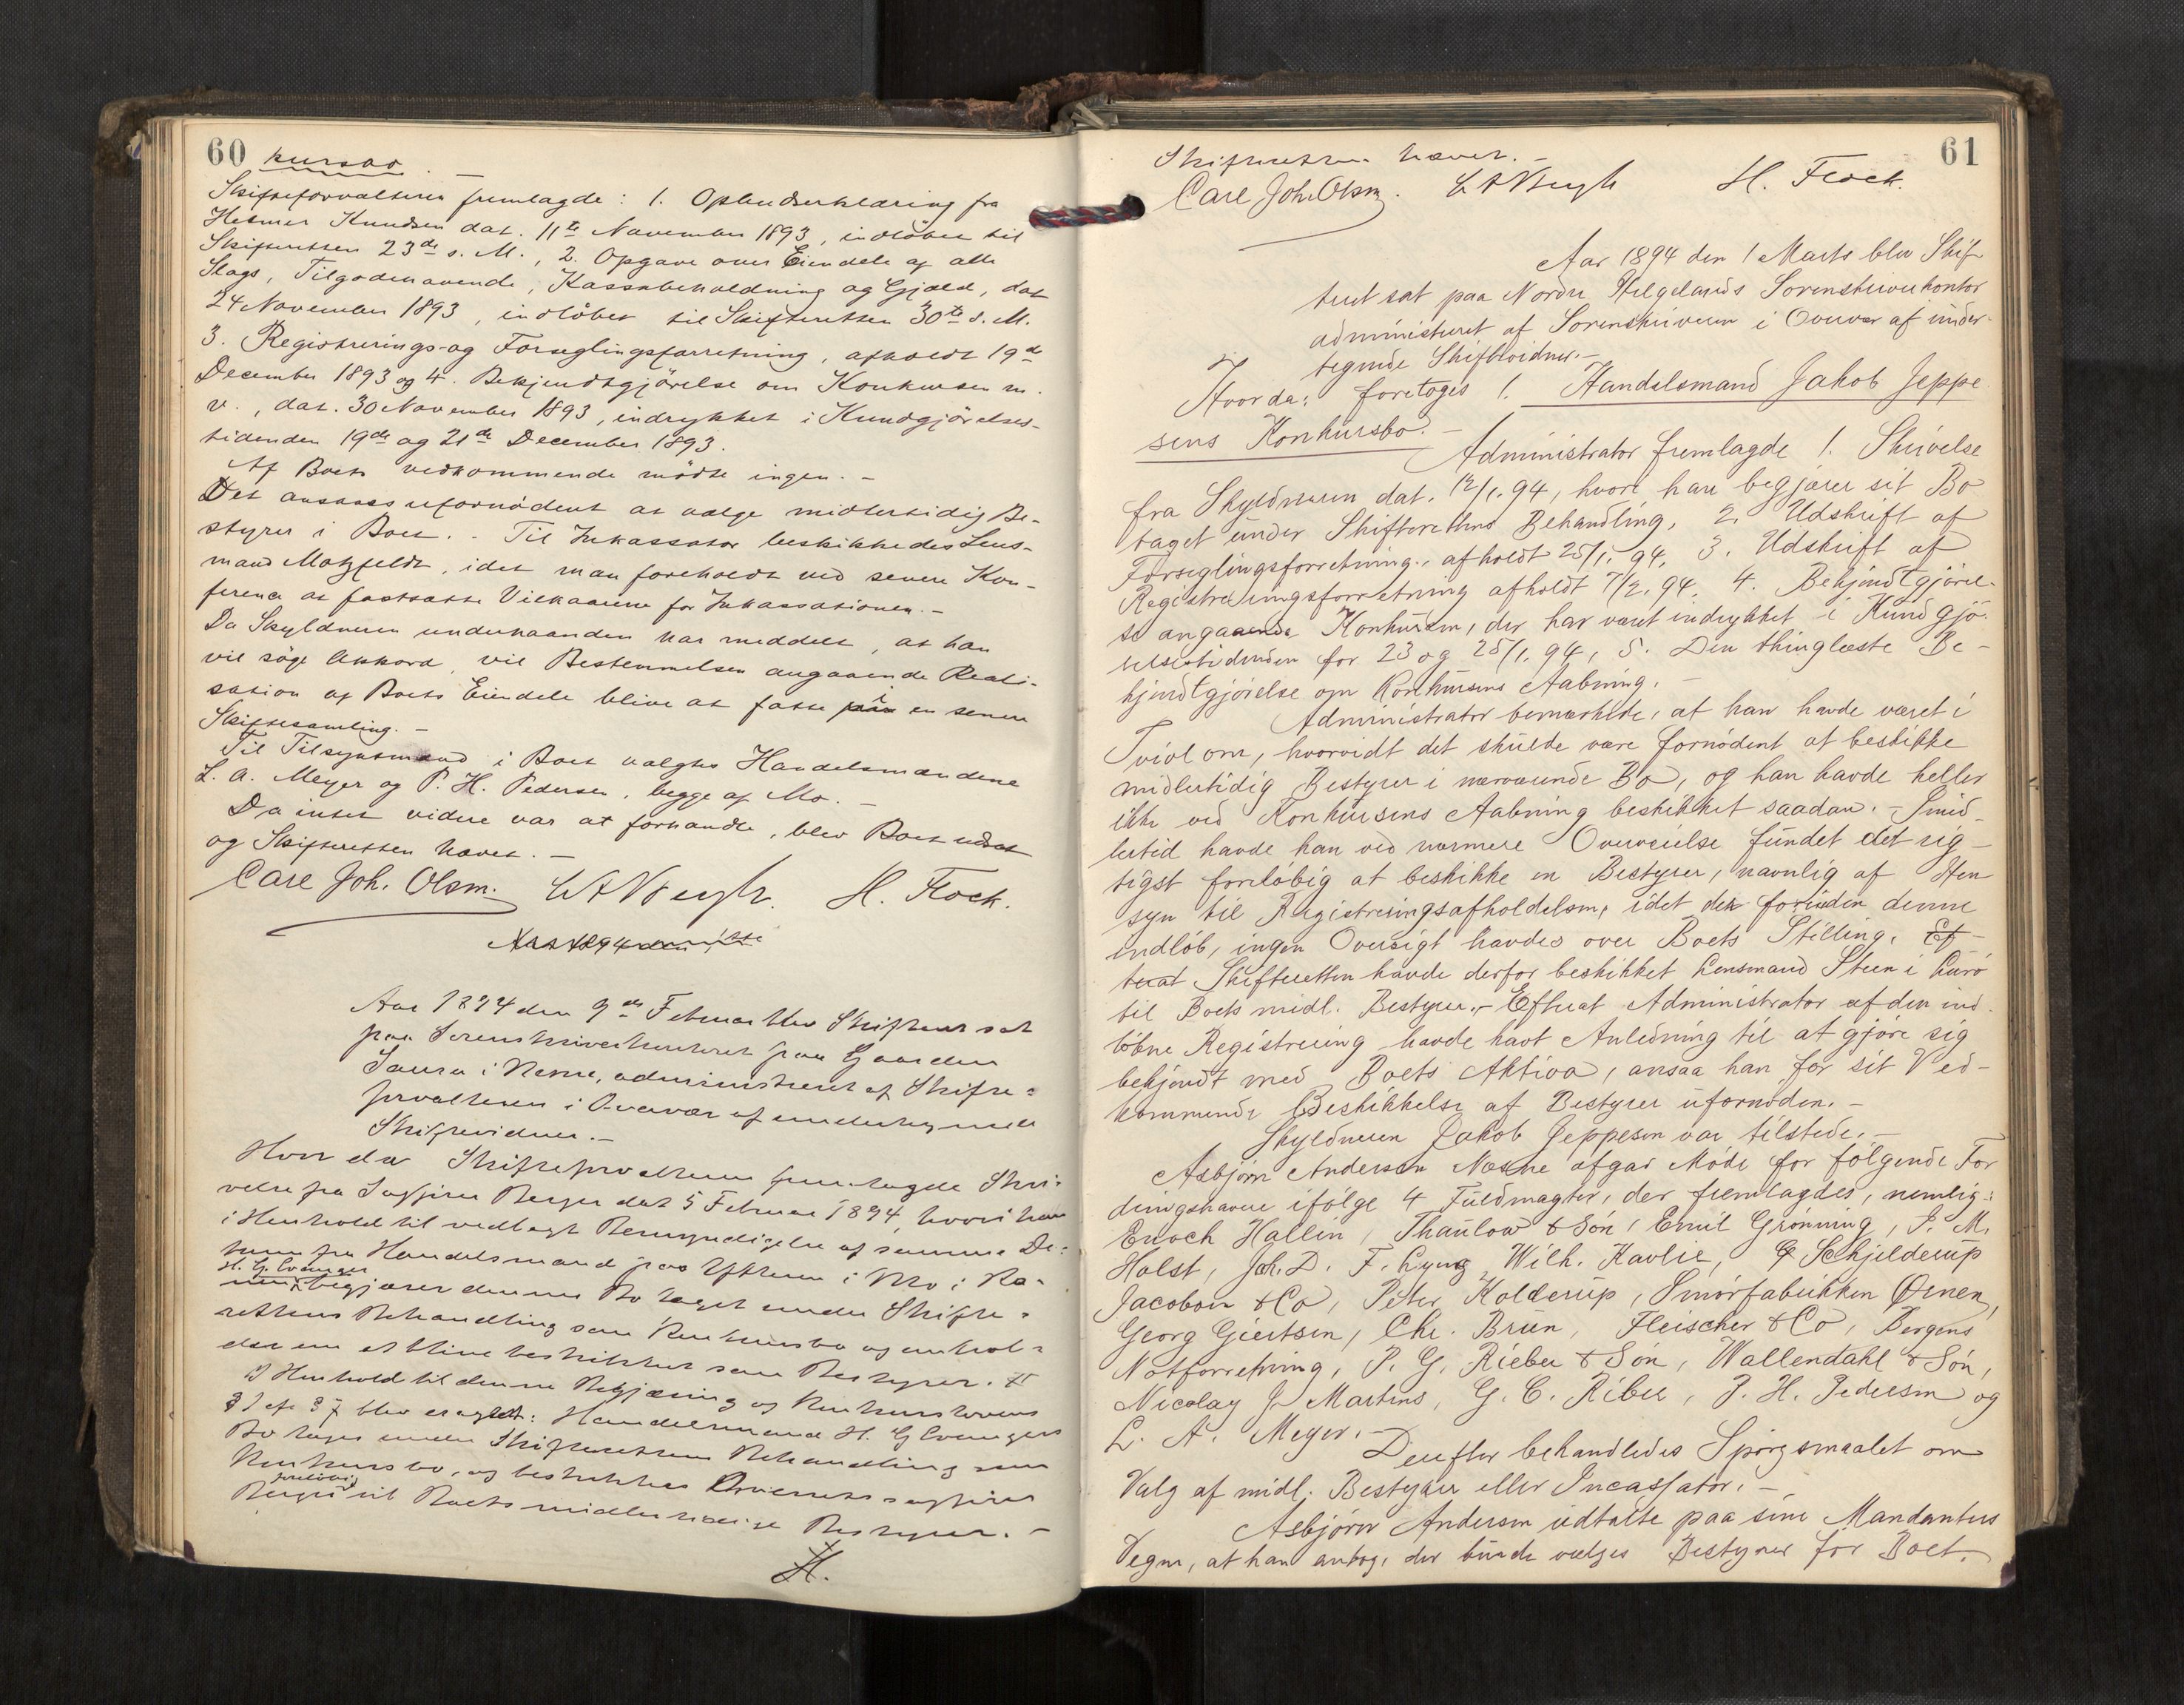 60 kursbo. —
Skifteforvalteren fremlagde: 1. Opbudserklæring fra
Helmer Knudsen dat. 11te November 1893, indløbet til
Skifteretten 23de s. M., 2. Opgave over Eiendele af alle
Slags, Tilgodehavende, Kassabeholdning og Gjæld, dat
24 November 1893, indløbet til Skifteretten 30te s. M.
3. Registrerings- og Forseglingsforretning, afholdt 19de
December 1893 og 4. Bekjendtgjörelse om Konkursen m.
v., dat. 30 November 1893, indrykket i Kundgjörelses-
tidenden 19de og 21de December 1893.
Af Boets vedkommende mödte ingen. —
Det ansaaes ufornödent at vælge midlertidig Be-
styrer i Boet. - Til Inkassator beskikkedes Lens-
mand Motzfeldt, idet man foreholdt ved senere Kon-
ference at fastsætte Vilkaarene for Inkassationen. —
Da Skyldneren underhaanden har meddelt, at han
vil söge Akkord, vil Bestemmelsen angaaende Reali-
sation af Boets Eiendele blive at fatte i en senere
Skiftesamling. —
Til Tilsynsmænd i Boet valgtes Handelsmændene
L. A. Meyer og P. H. Pedersen, begge af Mo. —
Da intet videre var at forhandle, blev Boet udsat
og Skifteretten hævet. —
Carl Joh. Olsen. H. Flock.
Aar 1894 den
Aar 1894 den 9de Februar blev Skifteret sat
paa Sorenskriverkontoret paa Gaarden
i Nesne, administreret af Skifte-
forvalteren i Overvær af undertegnede
Skiftevidner. —
Hvor da Skifteforvalteren fremlagde Skri-
velse fra Sagfører Berger dat 5 Februar 1894, hvori han
i Henhold til vedlagt Bemyndigelse af samme Da-
tum fra Handelsmand paa Ytteren i Mo i Ra-
nen H. G. Evenger begjærer dennes Bo taget under Skifte-
rettens Behandling som Konkursbo og anhol-
der om at blive beskikket som Bestyrer.
I Henhold til denne Begjæring og Konkurslovens
§ 1 cfr § 7 blev eragtet: Handelsmand H. G. Evengers
Bo tages under Skifterettens Behandling som
Konkursbo, og beskikkes Overretssagfører
Berger foreløbig til Boets midlertidige Bestyrer. —
H.
61
Skifteretten hævet. —
Carl Joh. Olsen. H. Flock.
Aar 1894 den 1 Marts blev Skif-
teret sat paa Nordre Helgelands Sorenskriverkontor
administreret af Sorenskriveren i Overvær af under-
tegnede Skiftevidner. —
Hvor da: foretoges 1. Handelsmand Jakob Jeppe
sens Konkursbo. —
Administrator fremlagde 1. Skrivelse
fra Skyldneren dat. 12/1. 94, hvori han begjærer sit Bo
taget under Skifterettens Behandling, 2. Udskrift af
Forseglingsforretning, afholdt 25/1. 94, 3. Udskrift af
Registreringsforretning afholdt 7/2. 94. 4. Bekjendtgjörel-
se angaaende Konkursen, der har været indrykket i Kundgjö-
relsestidenden for 23 og 25/1. 94, 5. Den thinglæste Be-
kjendtgjörelse om Konkursens Aabning. —
Administrator bemærkede, at han havde været i
Tvivl om, hvorvidt det skulde være fornödent at beskikke
midlertidig Bestyrer i nærværende Bo, og han havde heller
ikke ved Konkursens Aabning beskikket saadan. - Imid-
lertid havde han ved nærmere Overveielse fundet det rig-
tigst foreløbig at beskikke en Bestyrer, navnlig af Hen
syn til Registreringsafholdelsen, idet der forinden denne
indløb, ingen Oversigt havdes over Boets Stilling. Ef
terat Skifteretten havde derfor beskikket Lensmand Steen i Lurö
til Boets midl. Bestyrer. - Efterat Administrator af den ind
löbne Registrering havde havt Anledning til at gjöre sig
bekjendt med Boets Aktiva, ansaa han for sit Ved-
kommende Beskikkelse af Bestyrer ufornöden. —
Skyldneren Jakob Jeppesen var tilstede. —
Asbjörn Andersen Nesne afgav Möde for fölgende For
dringshavere ifölge 4 Fuldmagter, der fremlagdes, nemlig:
Enoch Hallin, Thaulow & Sön, Emil Grønning, P. M.
Holst, Joh. D. F. Lyng, Wilh. Kavlie, & Schjelderup
Jacobsen & Co, Peter Kolderup, Smörfabrikken Ørnen,
Georg Giertsen, Chr. Bruun, Fleischer & Co, Bergens
Notforretning, P. G. Rieber & Sön, Wallendahl & Sön,
Nicolay J Martens, G. C. Riber, P. H. Pedersen og
L. A. Meyer. —
Derefter behandledes Spörgsmaalet om
Valg af midl. Bestyrer eller Incassator. —
Asbjörn Andersen udtalte paa sine Mandanters
Vegne, at han antog, der burde vælges Bestyrer for Boet.